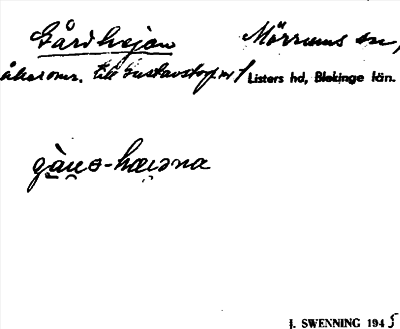 Gårdhejan Mörrums sn,
åkeromr. till Gustavstorp nr 1 Listers hd, Blekinge län.
gàu̯ǝ-hæi̯ǝna
J. SWENNING 1945